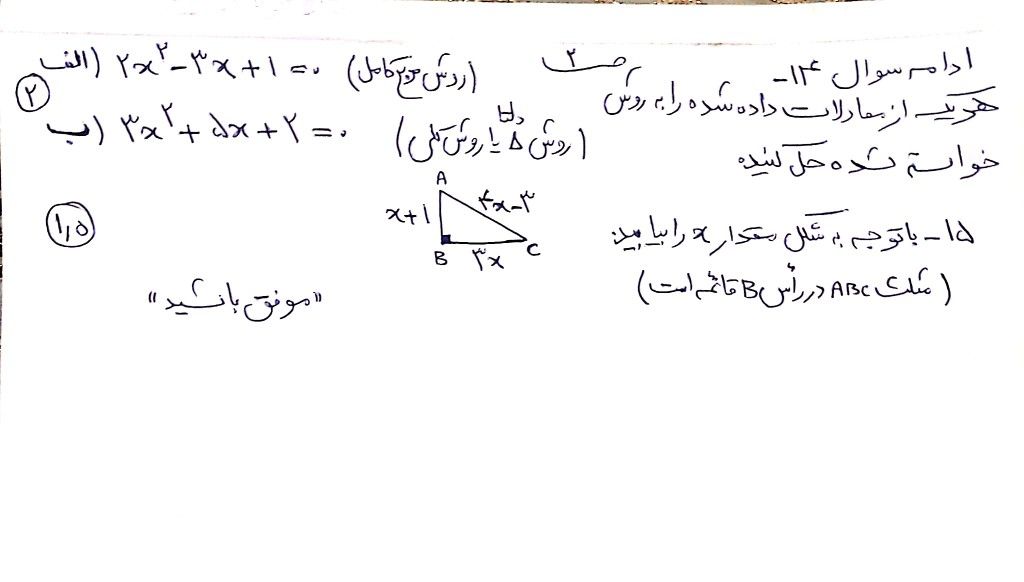 ادامه سوال ۱۴-
ص ۲
هر یک از معادلات داده شده را به روش
خواسته شده حل کنید
الف) ۲x²-۳x+۱=۰ (روش مربع کامل)
۲
ب) ۳x²+۵x+۲=۰ (روش Δ یا روش کلی)
دلتا
۱۵- با توجه به شکل مقدار x را بیابید.
(مثلث ABC در رأس B قائمه است)
A
x+۱
۴x-۳
B
۳x
C
۱,۵
"موفق باشید"